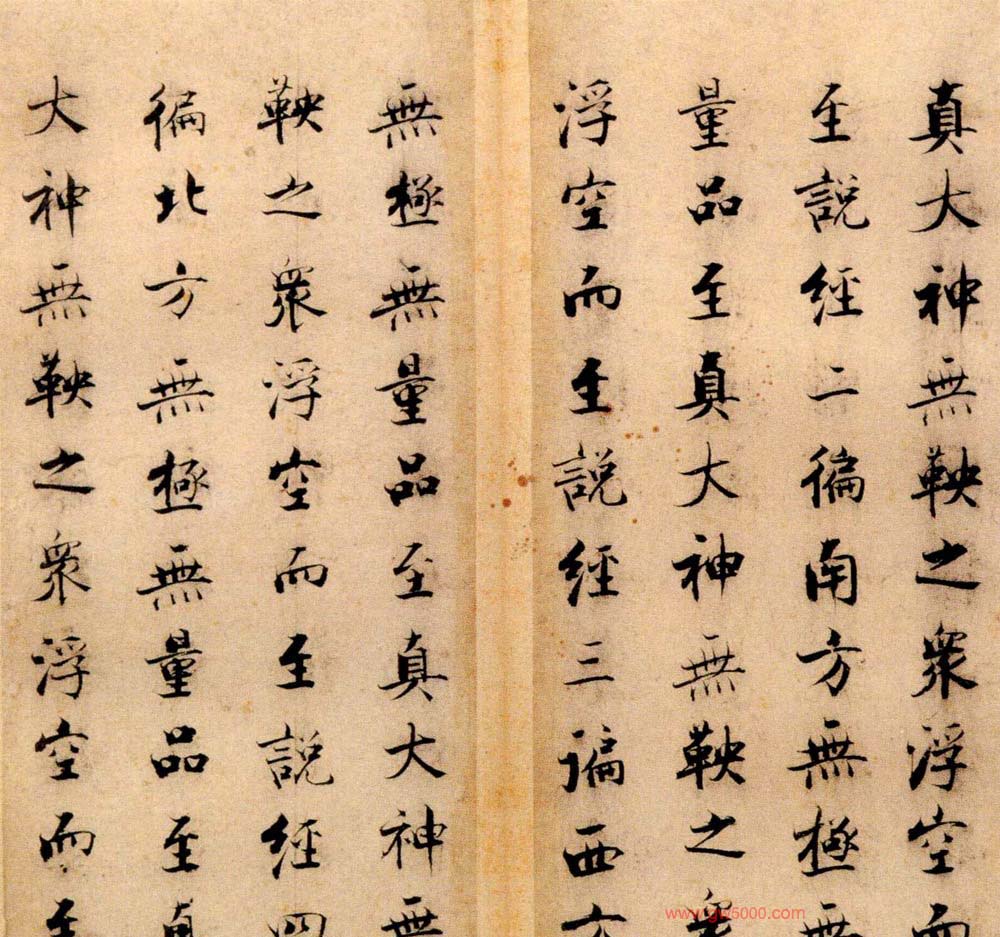 真大神無鞅之衆浮空而
至說經二徧南方無極無
量品至真大神無鞅之衆
浮空而至說經三諞西方
無極無量品至真大神無
鞅之衆浮空而至說經四
徧北方無極無量品至真
大神無鞅之衆浮空而至
www.gw5000.com